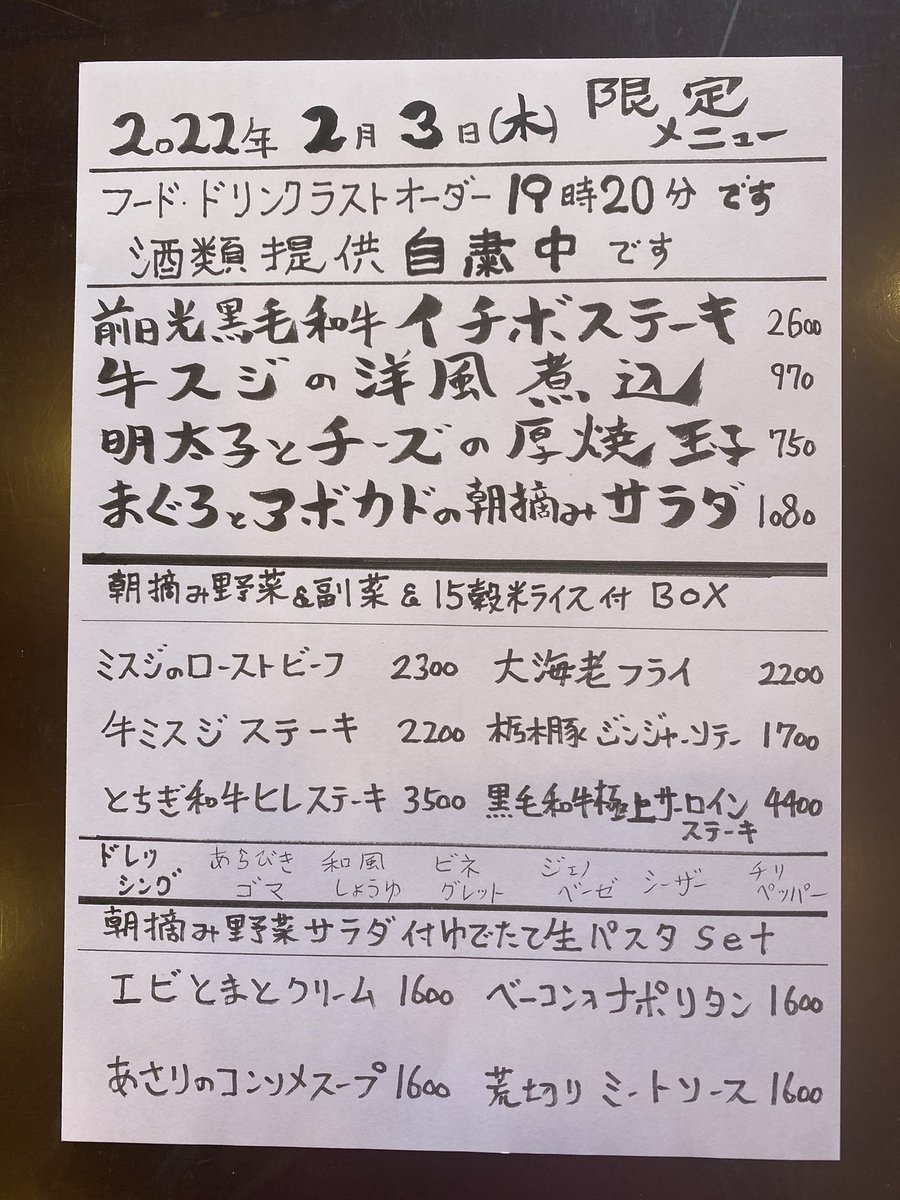 2022年 2月 3日(木) 限定メニュー
フード・ドリンクラストオーダー 19時20分 です
酒類提供 自粛中 です
前日光黒毛和牛イチボステーキ 2600
牛スジの洋風煮込 970
明太子とチーズの厚焼玉子 750
まぐろとアボカドの朝摘みサラダ 1080
朝摘み野菜&副菜&15穀米ライス付 BOX
ミスジのローストビーフ 2300 大海老フライ 2200
牛ミスジステーキ 2200 栃木豚ジンジャーソテー 1700
とちぎ和牛ヒレステーキ 3500 黒毛和牛極上サーロインステーキ 4400
ドレッシング あらびきゴマ 和風しょうゆ ビネグレット ジェノベーゼ シーザー チリペッパー
朝摘み野菜サラダ付ゆでたて生パスタ set
エビとまとクリーム 1600 ベーコンナポリタン 1600
あさりのコンソメスープ 1600 荒切りミートソース 1600